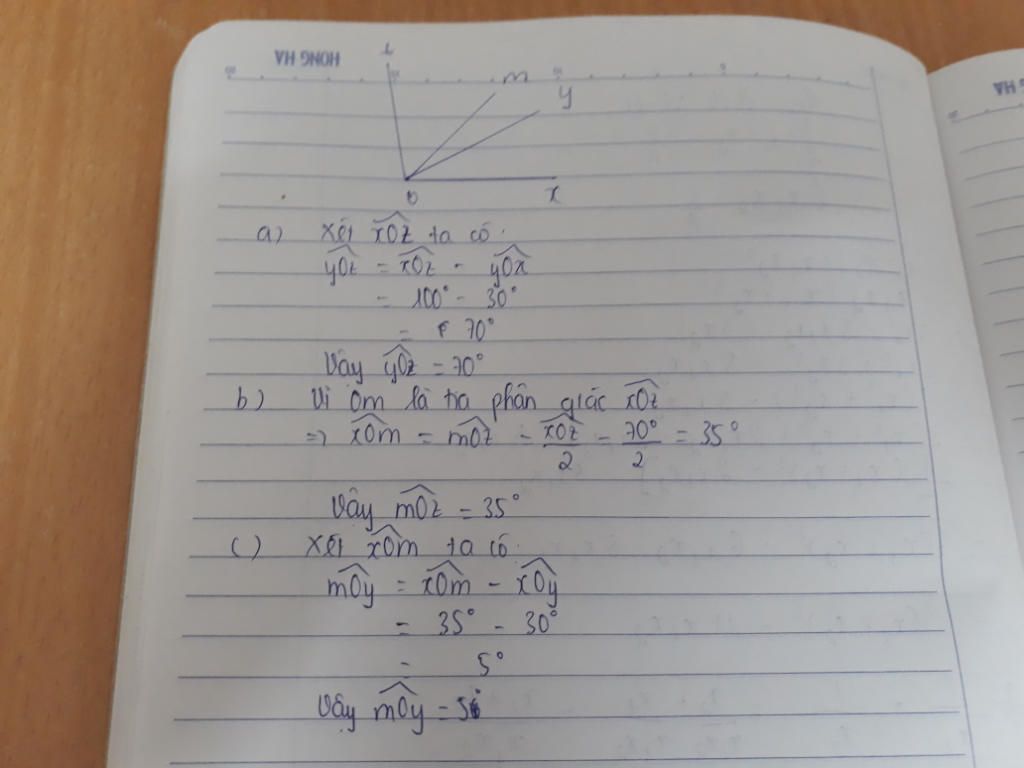 HONG HA
z
m
y
O
x
a) Xét xOz ta có.
yOz = xOz - yOx
= 100° - 30°
= 70°
Vậy yOz = 70°
b) Vì Om là tia phân giác xOz
=> xOm = mOz = xOz/2 = 70°/2 = 35°
Vậy mOz = 35°
c) Xét xOm ta có.
mOy = xOm - xOy
= 35° - 30°
= 5°
Vậy mOy = 5°